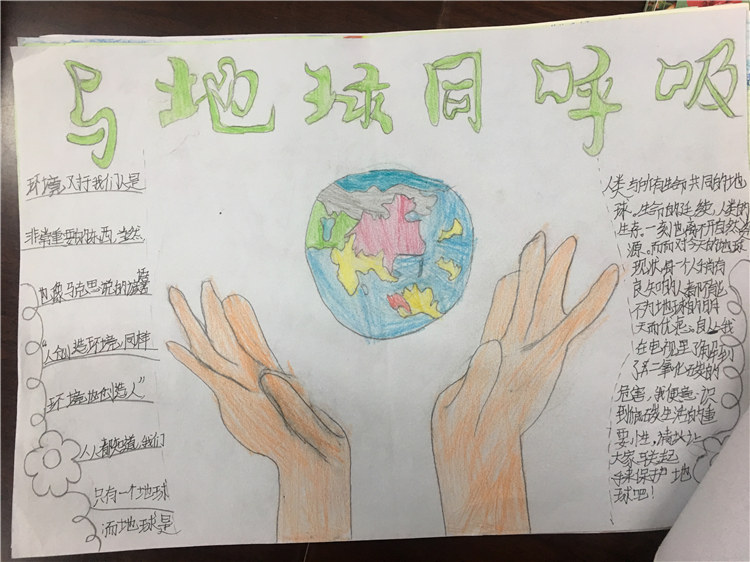 与地球同呼吸
环境,对于我们人是
非常重要的东西,当然,
就像马克思说的
"人创造环境,同样
环境也创造人"
人人都知道,我们
只有一个地球
而地球是
人类与所有生命共同的地
球,生命的延续,人类的
生存一刻也离不开自然资
源。而面对今天的地球
现状,每一个人
良知的人都可能
不为地球的明
天而忧虑。自从我
在电视里了解到
了二氧化碳的
危害,我便意识
到低碳生活的重
要性,请让
大家联起
手来保护地
球吧!